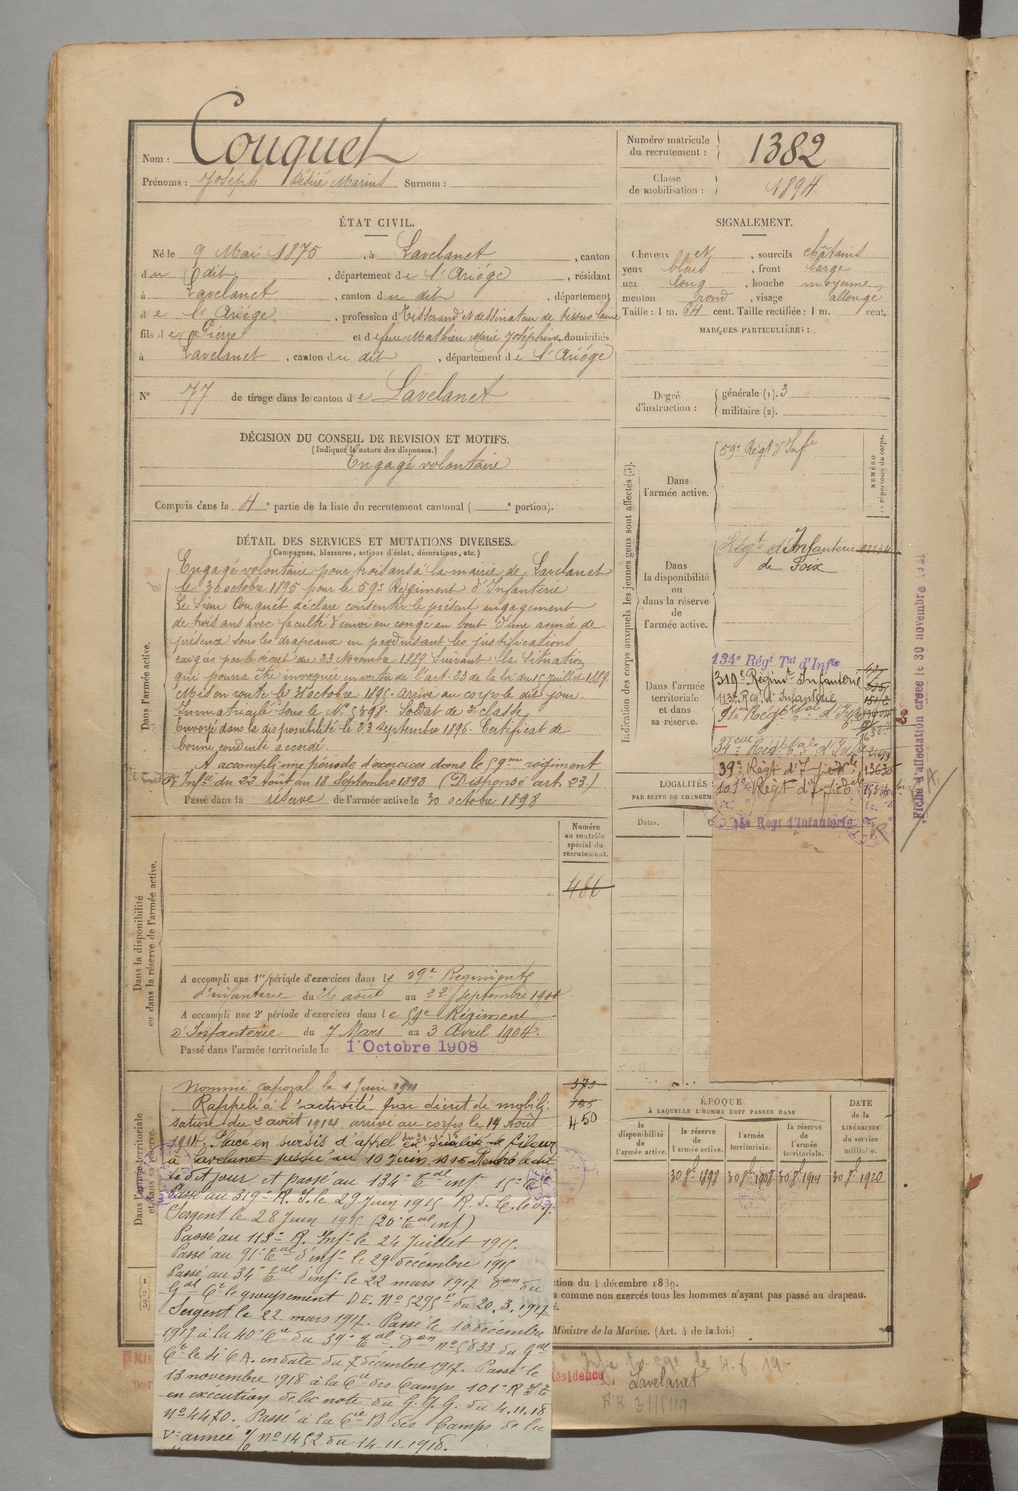 Nom : Couquet
Prénoms : Joseph Désiré Marius Surnom :
Numéro matricule
du recrutement : 1382
Classe
de mobilisation : 1894
ÉTAT CIVIL.
Né le 9 Mai 1875, à Lavelanet, canton
du dit, département de l'Ariége, résidant
à Lavelanet, canton du dit, département
de l'Ariége, profession de Tisserand et dessinateur de tissus laine
fils de Pierre et de feue Mathieu Marie Joséphine, domiciliés
à Lavelanet, canton du dit, département de l'Ariége
N° 77 de tirage dans le canton de Lavelanet
SIGNALEMENT.
Cheveux et, sourcils châtains
yeux bleus, front large
nez long, bouche moyenne
menton rond, visage allongé
Taille : 1 m. 64 cent. Taille rectifiée : 1 m. cent.
MARQUES PARTICULIÈRES :
Degré
d'instruction :
générale (1). 3
militaire (2).
DÉCISION DU CONSEIL DE REVISION ET MOTIFS.
(Indiquer la nature des dispenses.)
Engagé volontaire
Compris dans la 4e partie de la liste du recrutement cantonal ( e portion).
DÉTAIL DES SERVICES ET MUTATIONS DIVERSES.
(Campagnes, blessures, actions d'éclat, décorations, etc.)
Dans l'armée active.
Engagé volontaire pour trois ans à la mairie de Lavelanet
le 30 octobre 1895 pour le 59e Régiment d'Infanterie
Le Sieur Couquet déclare consentir le présent engagement
de trois ans avec faculté d'envoi en congé au bout d'une année de
présence sous les drapeaux en produisant les justifications
exigées par le décret du 23 Novembre 1889 suivant la situation
qui pourra être invoquée en vertu de l'art. 23 de la loi du 15 juillet 1889
Mis en route le 31 octobre 1895. Arrivé au corps le dit jour.
Immatriculé sous le N° 5398. Soldat de 2e classe
Envoyé dans la disponibilité le 23 Septembre 1896. Certificat de
bonne conduite accordé.
A accompli une période d'exercices dans le 59me régiment
d'Infie du 22 Août au 18 Septembre 1898 (Dispensé art. 23.)
Passé dans la réserve de l'armée active le 30 octobre 1898
Indication des corps auxquels les jeunes gens sont affectés (3).
NUMÉRO
au répertoire du corps.
Dans
l'armée active.
59e Régt d'Infie
Dans
la disponibilité
ou
dans la réserve
de
l'armée active.
Régt d'Infanterie
de Foix
Dans l'armée
territoriale
et dans
sa réserve.
134e Régt Tal d'Infie
319e Régimt Infanterie
113e Rég. d'Infanterie
91e Régt Tal d'Infie
34eme Régt Tal d'Infie
39e Régt d'Infie
101e Régt d'Infie
14e Régt d'Infanterie
Fiche d'affectation créée le 30 novembre
LOCALITÉS
PAR SUITE DE CHANGEM
Dates.
Dans la disponibilité
ou dans la réserve de l'armée active.
Numéro
au contrôle
spécial du
recrutement.
486
A accompli une 1re période d'exercices dans le 59e Régiment
d'infanterie du 26 août au 22 septembre 1901
A accompli une 2e période d'exercices dans le 59e Régiment
d'Infanterie du 7 Mars au 3 Avril 1904.
Passé dans l'armée territoriale le 1er Octobre 1908
Dans l'armée territoriale
et dans sa réserve.
450
Nommé caporal le 1 Juin 1911
Rappelé à l'activité par décret de mobili-
sation du 2 août 1914, arrivé au corps le 14 Août
1914. Placé en sursis d'appel en qualité de fileur
à Lavelanet jusqu'au 10 Juin 1915 Rentré le dit
le dit jour et passé au 134e Tal inf 15e Cie
Passé au 319e R. I. le 29 Juin 1915
Sergent le 28 Juin
Passé au 113e R. Inf. le 24 Juillet 1915.
Passé au 91e Tal d'inf. le 29 décembre 1915
Passé au 34e Tal d'inf. le 22 mars 1917 Don du
Gal Ct le groupement D.E. N° 5295 du 20.3.1917
Sergent le 22 mars 1917. Passé le 10 décembre
1917 à la 40e Cie du 39e Tal Don n° 5833 du Gal
Ct le 4e C.A. en date du 7 décembre 1917. Passé le
13 novembre 1918 à la Cie des Camps 101e R.I.T.
en exécution de la note du G.Q.G. du 4.11.18
n° 4470. Passé à la Cie B des Camps de la
Ve armée n° 1452 du 14-11-1918.
ÉPOQUE
À LAQUELLE L'HOMME DOIT PASSER DANS
la
disponibilité
de
l'armée active.
la réserve
de
l'armée active.
l'armée
territoriale.
la réserve
de l'armée
territoriale.
DATE
de la
LIBÉRATION
du service
militaire.
30 8bre 1898
30 8bre 1908
30 8bre 1914
30 8bre 1920
ction du 4 décembre 1889.
a comme non exercés tous les hommes n'ayant pas passé au drapeau.
Ministre de la Marine. (Art. 4 de la loi)
Résidence
Lavelanet